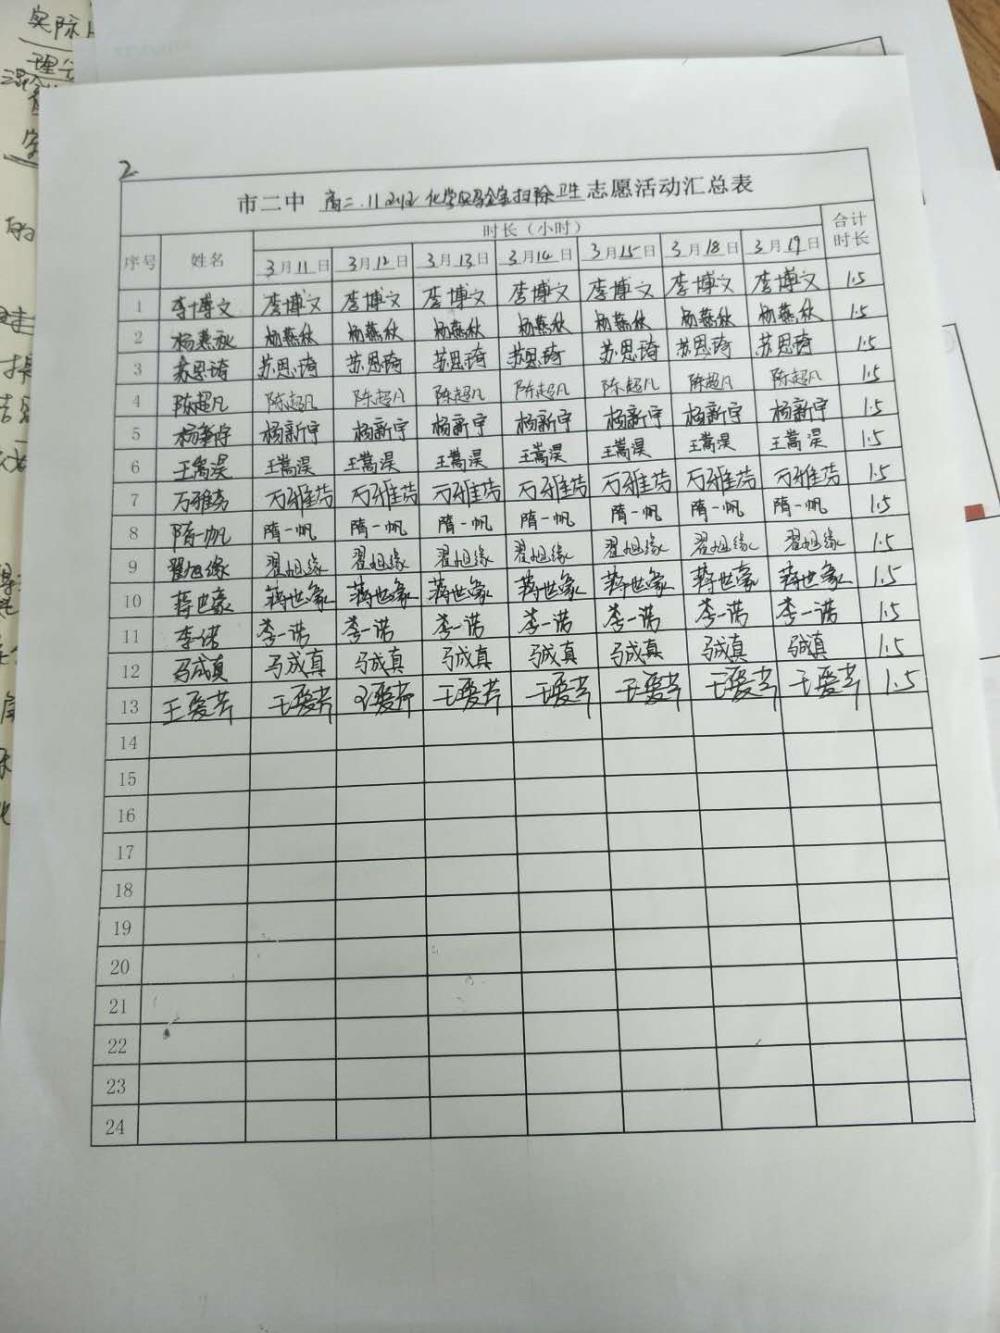 实际
2
市二中 高二.11班 化学实验室扫除卫生 志愿活动汇总表
序号 姓名 时长（小时） 合计时长
3月11日 3月12日 3月13日 3月14日 3月15日 3月18日 3月19日
1 李博文 李博文 李博文 李博文 李博文 李博文 李博文 李博文 1.5
2 杨燕秋 杨燕秋 杨燕秋 杨燕秋 杨燕秋 杨燕秋 杨燕秋 杨燕秋 1.5
3 苏思琦 苏思琦 苏思琦 苏思琦 苏思琦 苏思琦 苏思琦 苏思琦 1.5
4 陈超凡 陈超凡 陈超凡 陈超凡 陈超凡 陈超凡 陈超凡 陈超凡 1.5
5 杨新宇 杨新宇 杨新宇 杨新宇 杨新宇 杨新宇 杨新宇 杨新宇 1.5
6 王嵩淏 王嵩淏 王嵩淏 王嵩淏 王嵩淏 王嵩淏 王嵩淏 王嵩淏 1.5
7 万雅芳 万雅芳 万雅芳 万雅芳 万雅芳 万雅芳 万雅芳 万雅芳 1.5
8 隋一帆 隋一帆 隋一帆 隋一帆 隋一帆 隋一帆 隋一帆 隋一帆 1.5
9 翟旭缘 翟旭缘 翟旭缘 翟旭缘 翟旭缘 翟旭缘 翟旭缘 翟旭缘 1.5
10 蒋世豪 蒋世豪 蒋世豪 蒋世豪 蒋世豪 蒋世豪 蒋世豪 蒋世豪 1.5
11 李一诺 李一诺 李一诺 李一诺 李一诺 李一诺 李一诺 李一诺 1.5
12 马成真 马成真 马成真 马成真 马成真 马成真 马成真 马成真 1.5
13 王爱芹 王爱芹 王爱芹 王爱芹 王爱芹 王爱芹 王爱芹 王爱芹 1.5
14
15
16
17
18
19
20
21
22
23
24